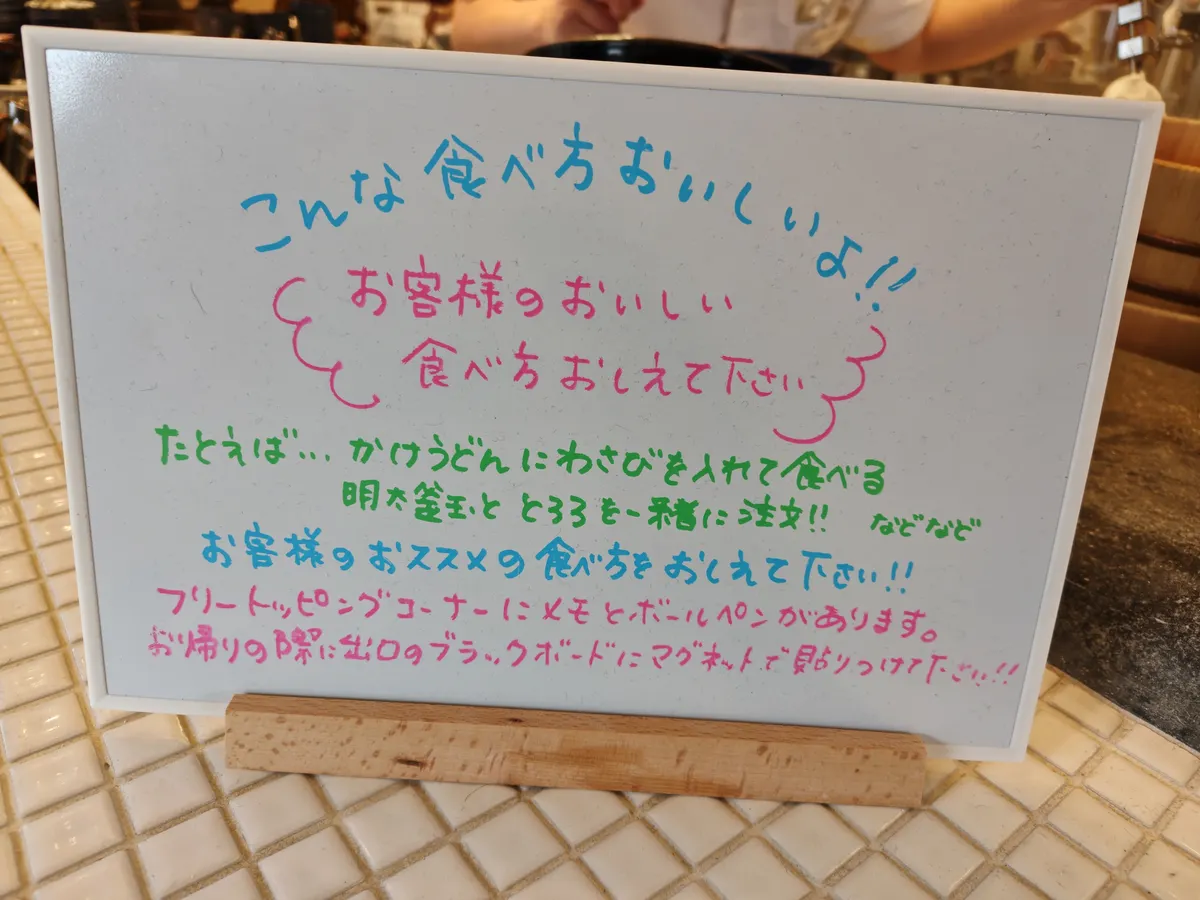 こんな食べ方おいしいよ!!
お客様のおいしい
食べ方おしえて下さい
たとえば…かけうどんにわさびを入れて食べる
明太釜玉ととろろを一緒に注文!! などなど
お客様のおススメの食べ方をおしえて下さい!!
フリートッピングコーナーにメモとボールペンがあります。
お帰りの際に出口のブラックボードにマグネットで貼りつけて下さい!!